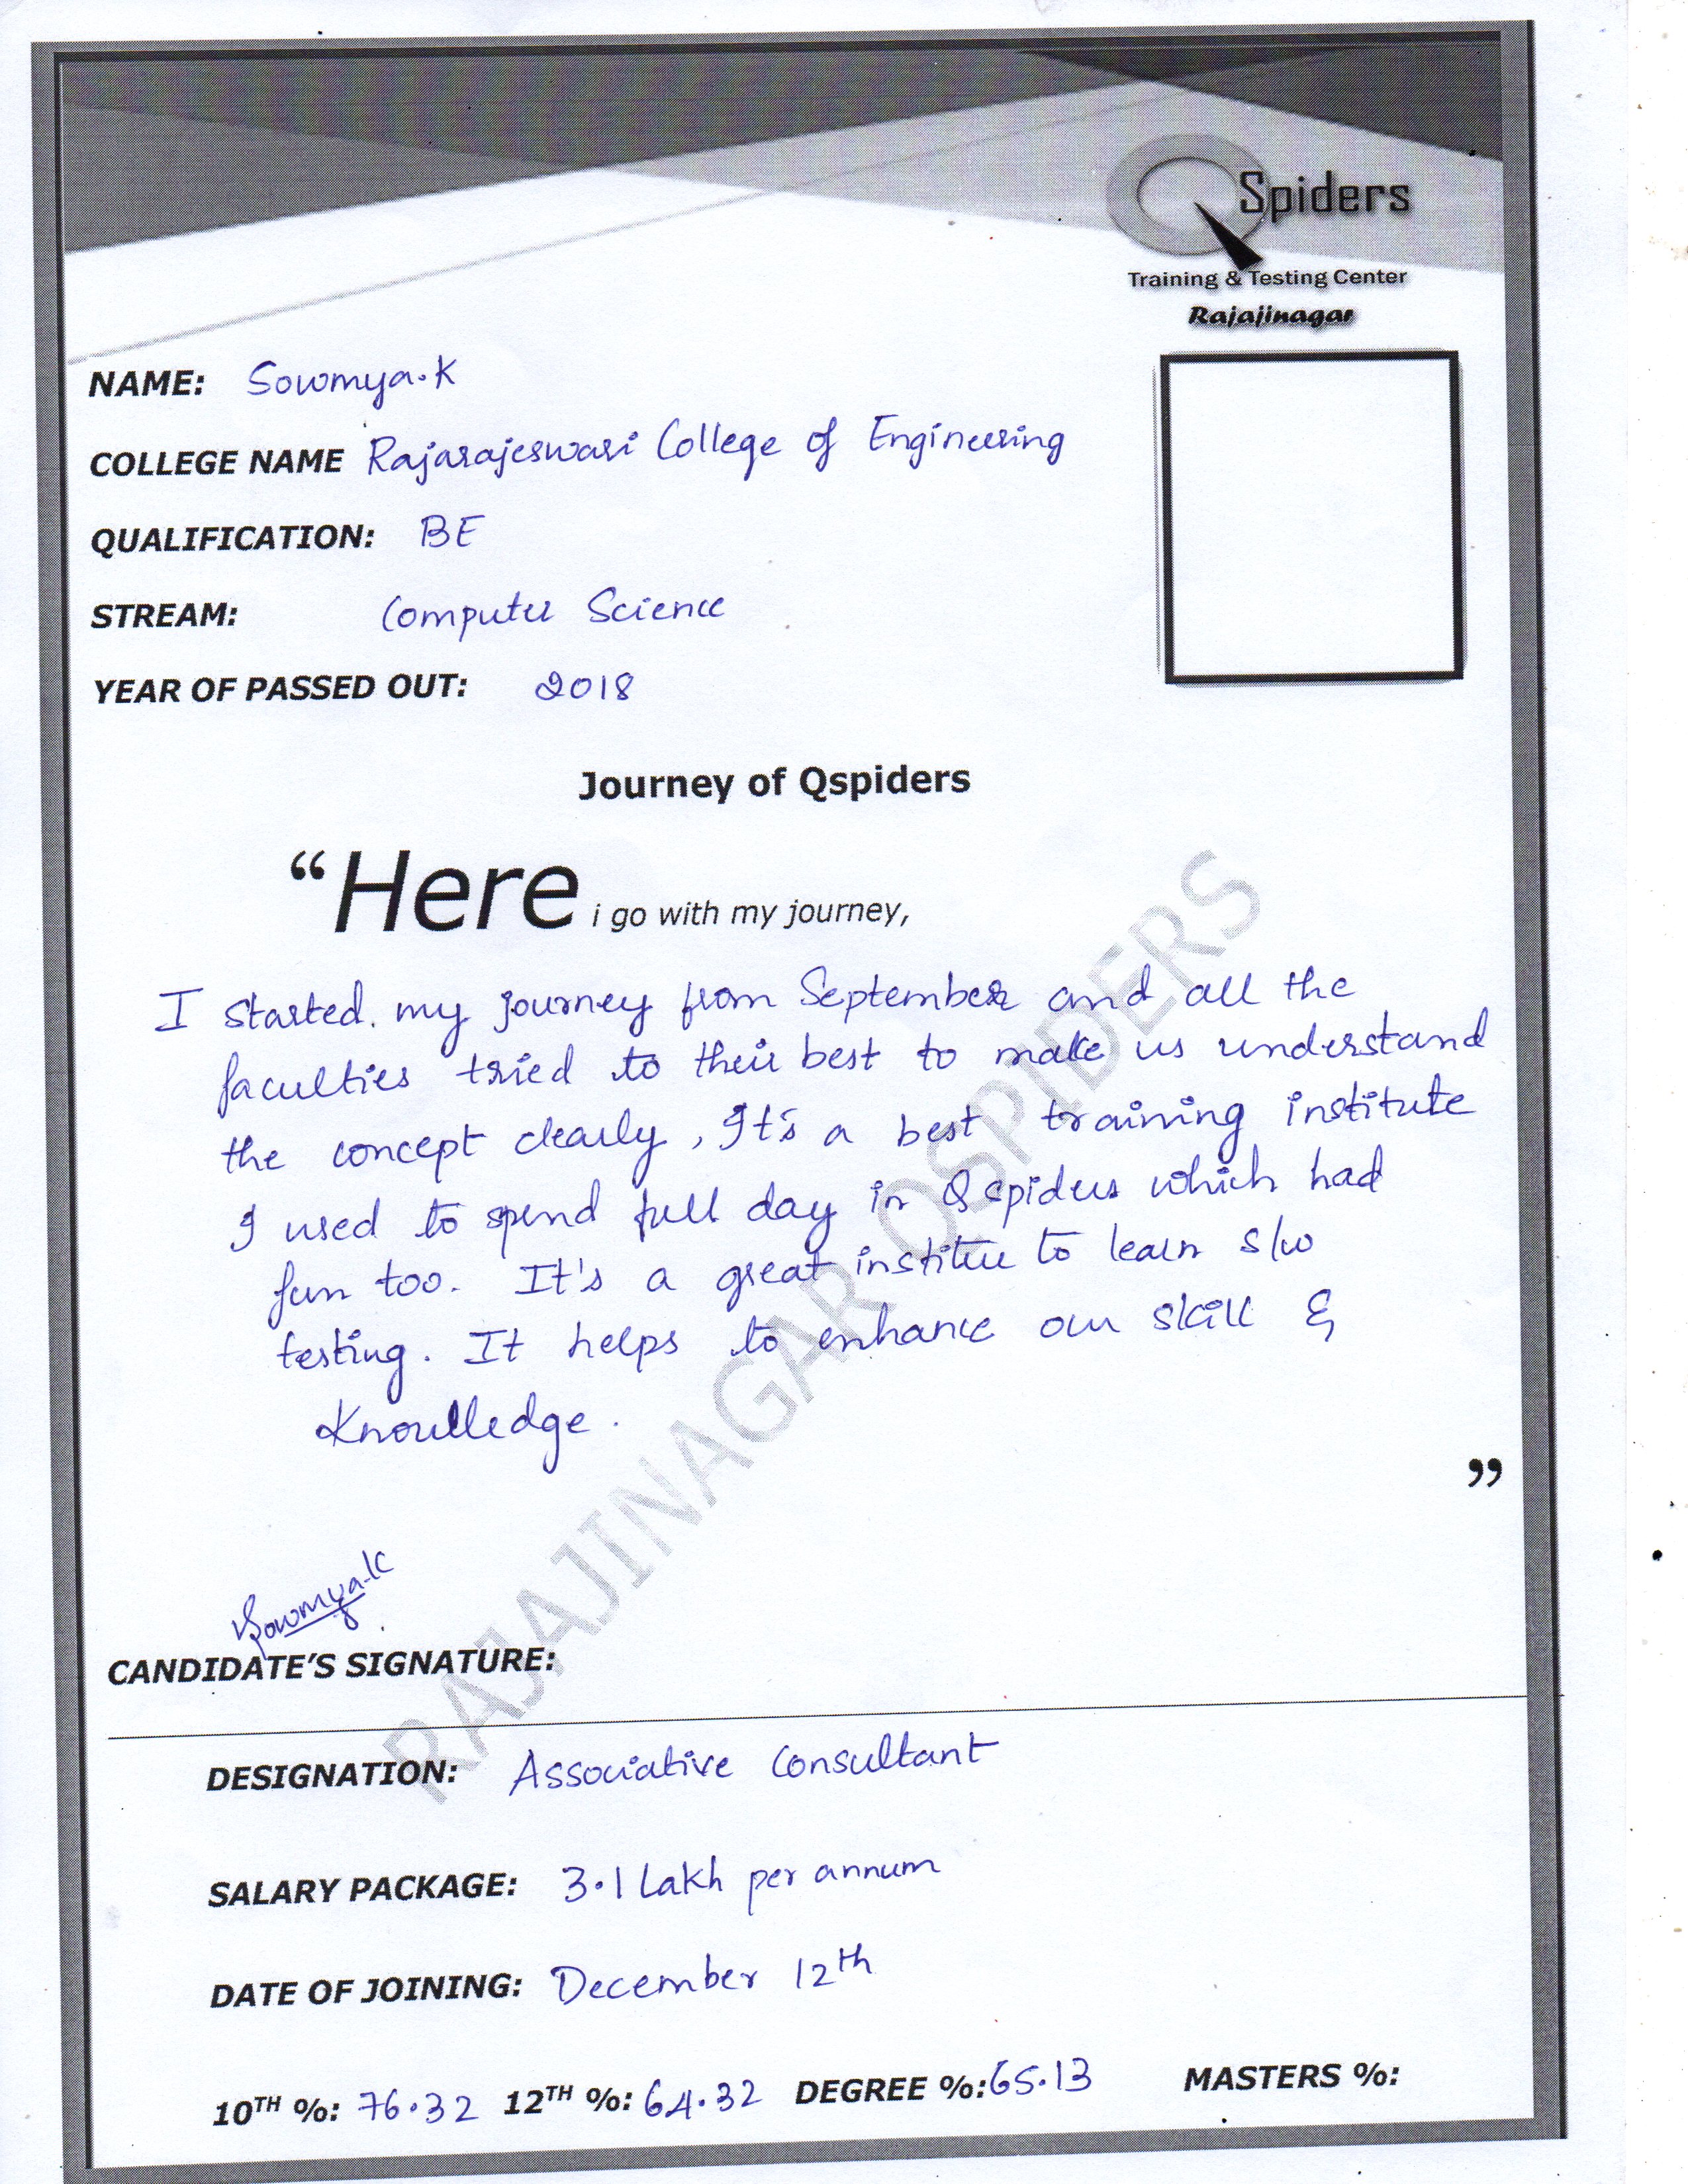 Spiders
Training & Testing Center
Rajajinagar
NAME: Sowmya.K
COLLEGE NAME Rajarajeswari College of Engineering
QUALIFICATION: BE
STREAM: Computer Science
YEAR OF PASSED OUT: 2018
Journey of Qspiders
“Here i go with my journey,
I started. my journey from September and all the
faculties tried to their best to make us understand
the concept clearly, It's a best training institute
I used to spend full day in Qspiders which had
fun too. It's a great institue to learn s/w
testing. It helps to enhance our skill &
Knowlledge.
”
Sowmya.K
CANDIDATE’S SIGNATURE:
RAJAJINAGAR QSPIDERS
DESIGNATION: Associative Consultant
SALARY PACKAGE: 3.1 Lakh per annum
DATE OF JOINING: December 12th
10TH %: 76.32 12TH %: 64.32 DEGREE %: 65.13 MASTERS %: